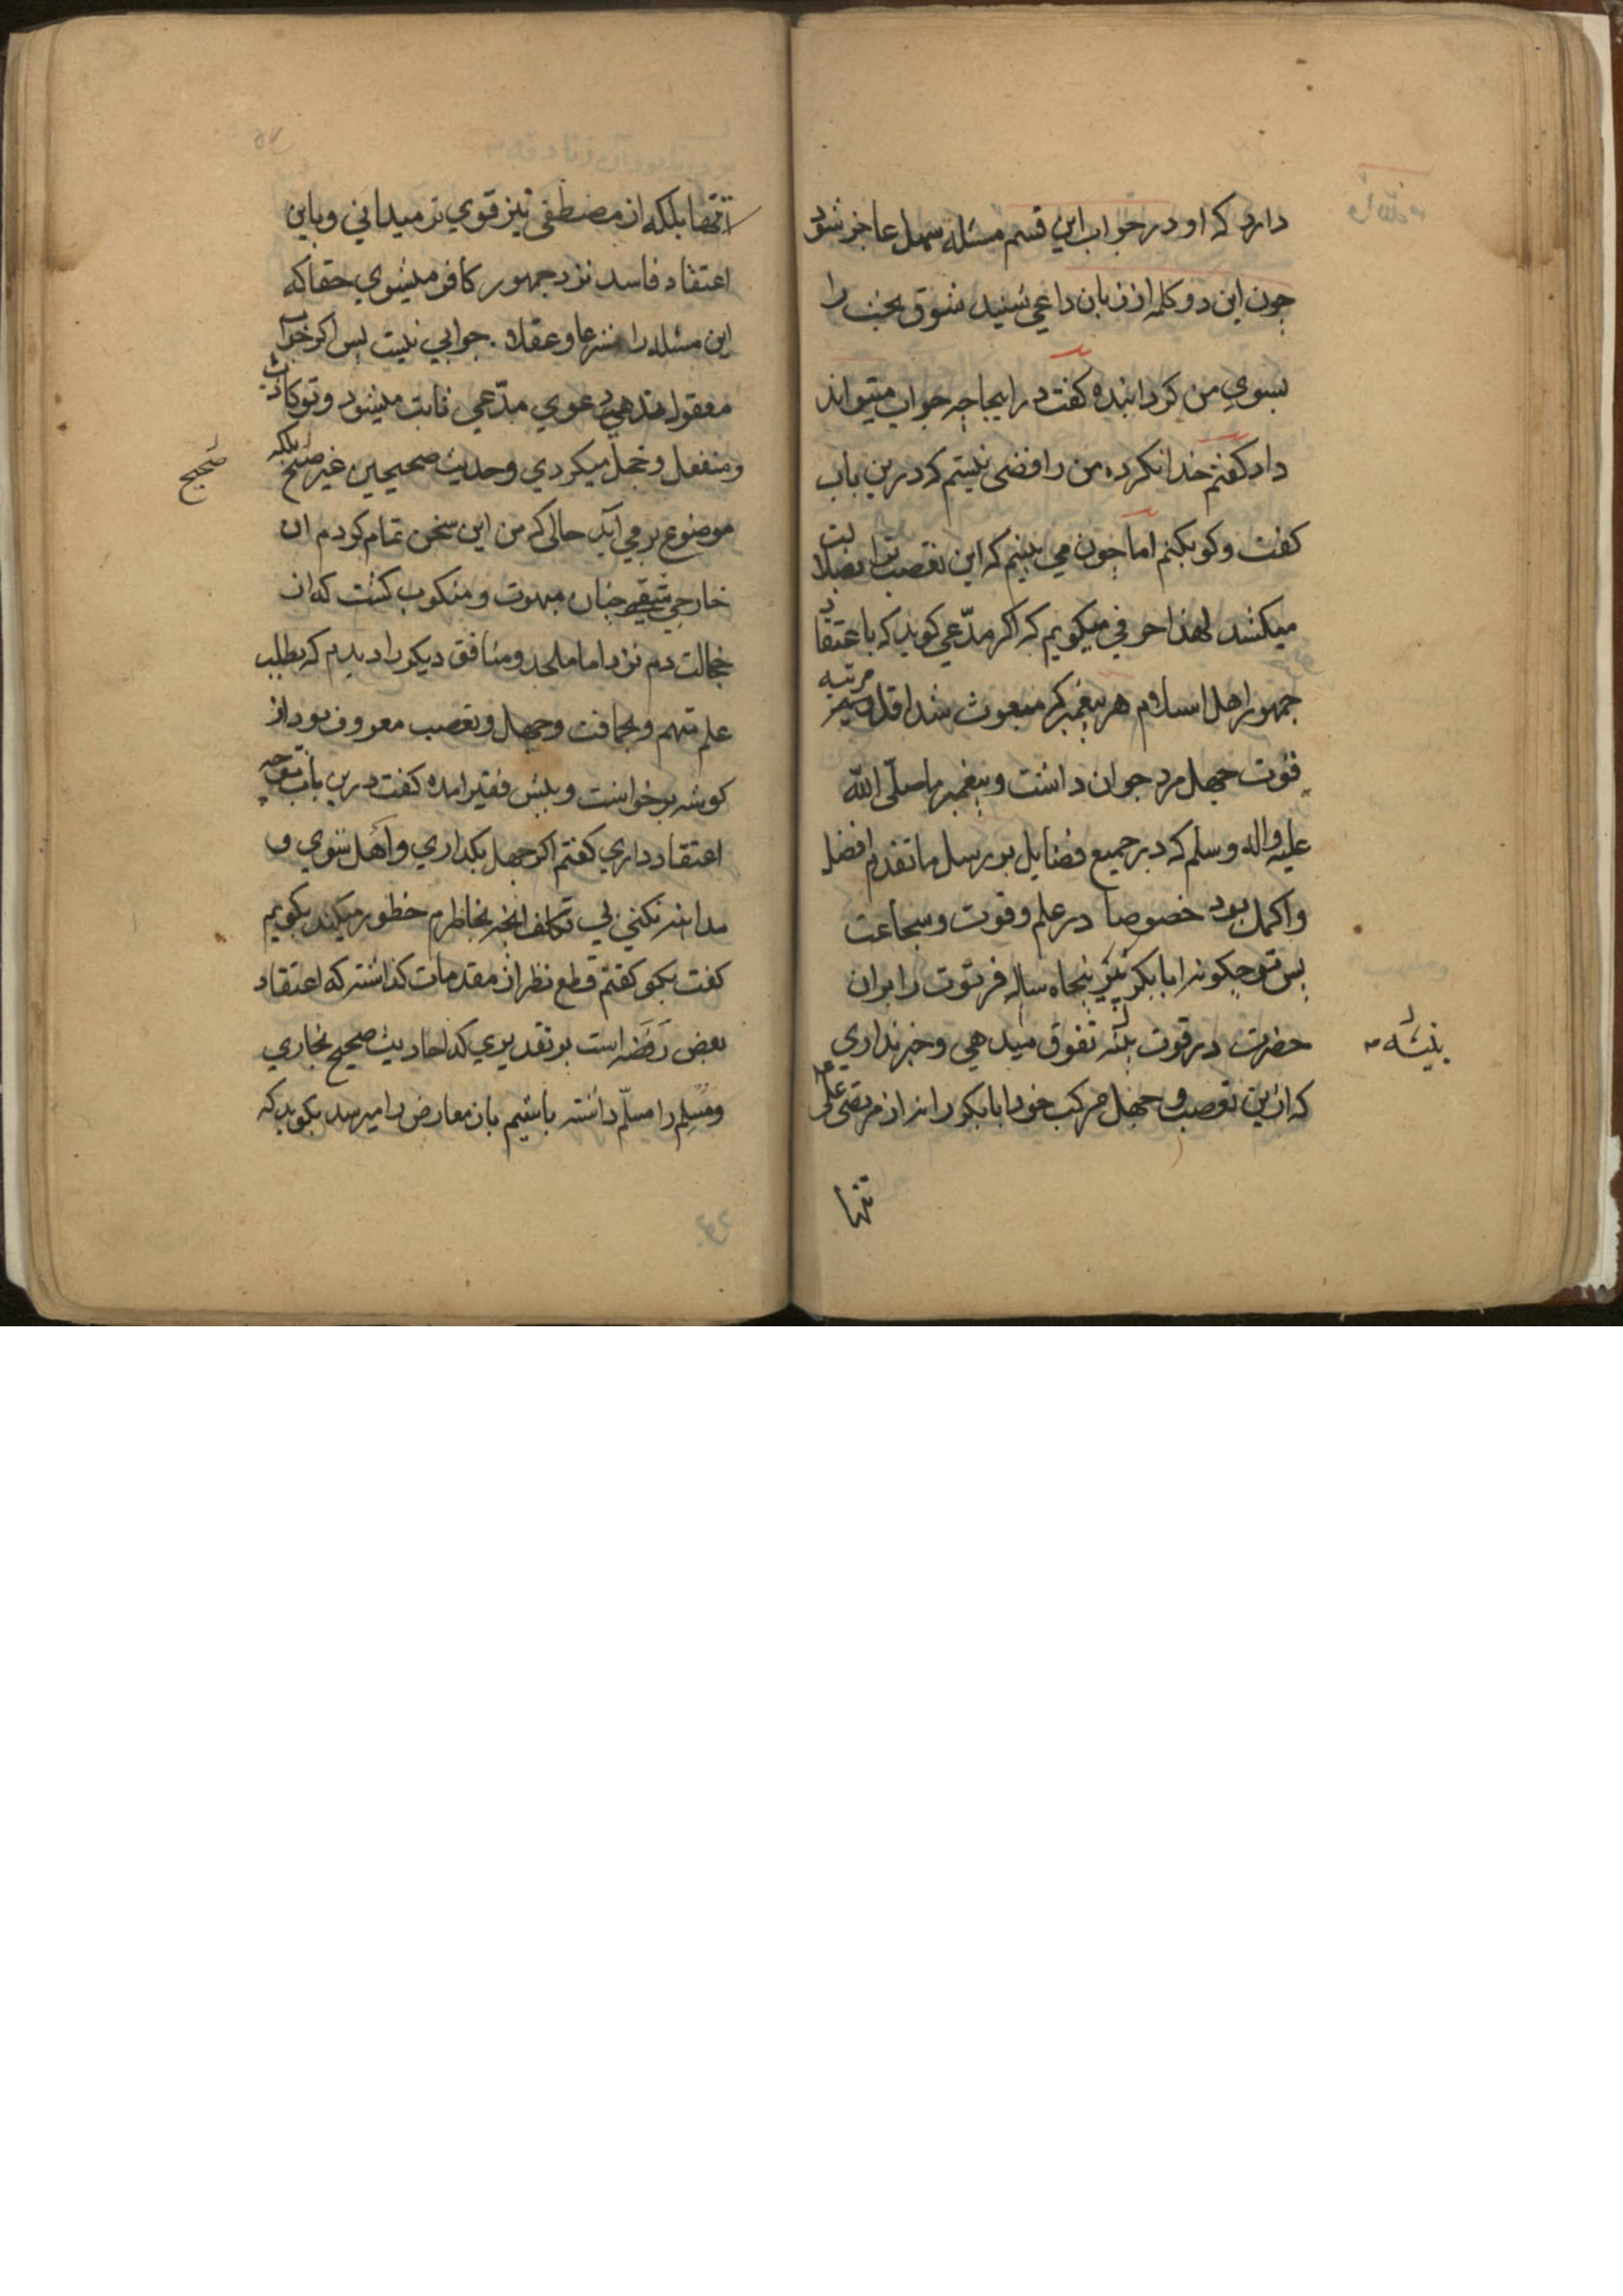 دارد که او در جواب این قسم مسئله سهل عاجز شود
چون این دو کلمه از زبان داعی شنید شوق بحث را
بسوی من کردانیده کفت در اینجا چه جواب میتواند
داد کفتم خدا نکرده من رافضی نیستم که درین باب
کفت وکو بکنم اما چون می بینم که این تعصب ترا بضلالت
میکشد لهذا حرفی میکویم که اکر مدّعی کوید که باعتقاد
جمهور اهل اسلام هر پیغمبر که مبعوث شد اقل مرتبه
قوّت چهل مرد جوان داشت و پیغمبر ما صلّی الله
علیه واله وسلم که در جمیع فضایل بر رسل ما تقدم افضل
واکمل بود خصوصا در علم وقوت وشجاعت
پس تو چکونه ابابکر پنجاه ساله فرتوت را بر ان
حضرت در قوت تفوق میدهی وخبر نداری
که ازین تعصب وجهل مرکب خود ابابکر را نه از مرتضی علی
بنیشه
تنها
تنها بلکه از مصطفی نیز قوی تر میدانی وباین
اعتقاد فاسد نزد جمهور کافر میشوی حقا که
این مسئله را شرعا وعقلا جوابی نیست پس اکر جواب
معقول ندهی دعوی مدّعی ثابت میشود وتو کاذب
ومنفعل وخجل میکردی وحدیث صحیحین غیر صحیح بلکه
صحیح
موضوع بر می آید حالی که من این سخن تمام کردم ان
خارجی شقی چنان مبهوت ومنکوب کشت که از
خجالت دم نزد اما ملحد ومنافق دیکر را دیدم که بطلب
علم متهم وبحماقت وجهل وتعصب معروف بود از
کوشه برخواست وپیش فقیر امده کفت درین باب تو چه
اعتقاد داری کفتم اکر جهل بکذاری واهل شوی و
مداهنه نکنی بی تکلف انچه بخاطرم خطور میکند بکویم
کفت بکو کفتم قطع نظر از مقدمات کذاشته که اعتقاد
بعض رفضه است بر تقدیری که احادیث صحیح بخاری
ومسلم را مسلّم داشته باشیم باز معارض را میرسد بکوید که